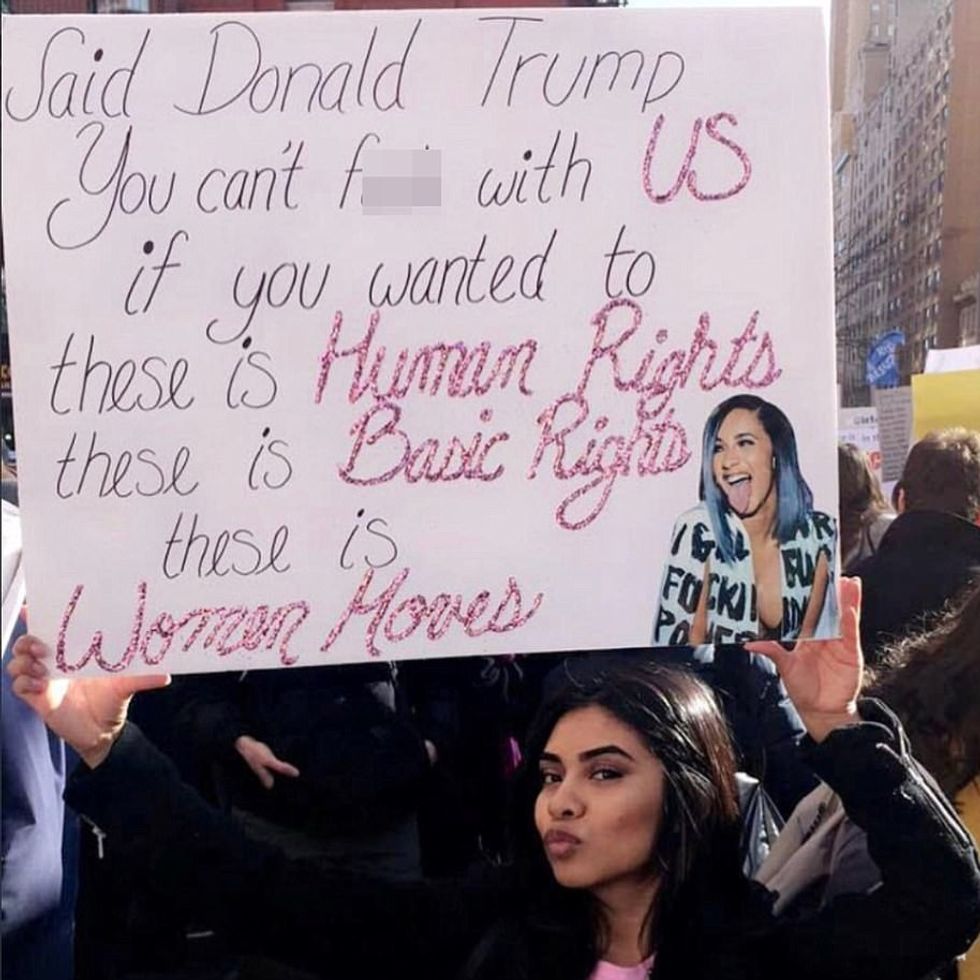 Said Donald Trump
You can't f with US
if you wanted to
these is Human Rights
these is Basic Rights
these is
Women Moves